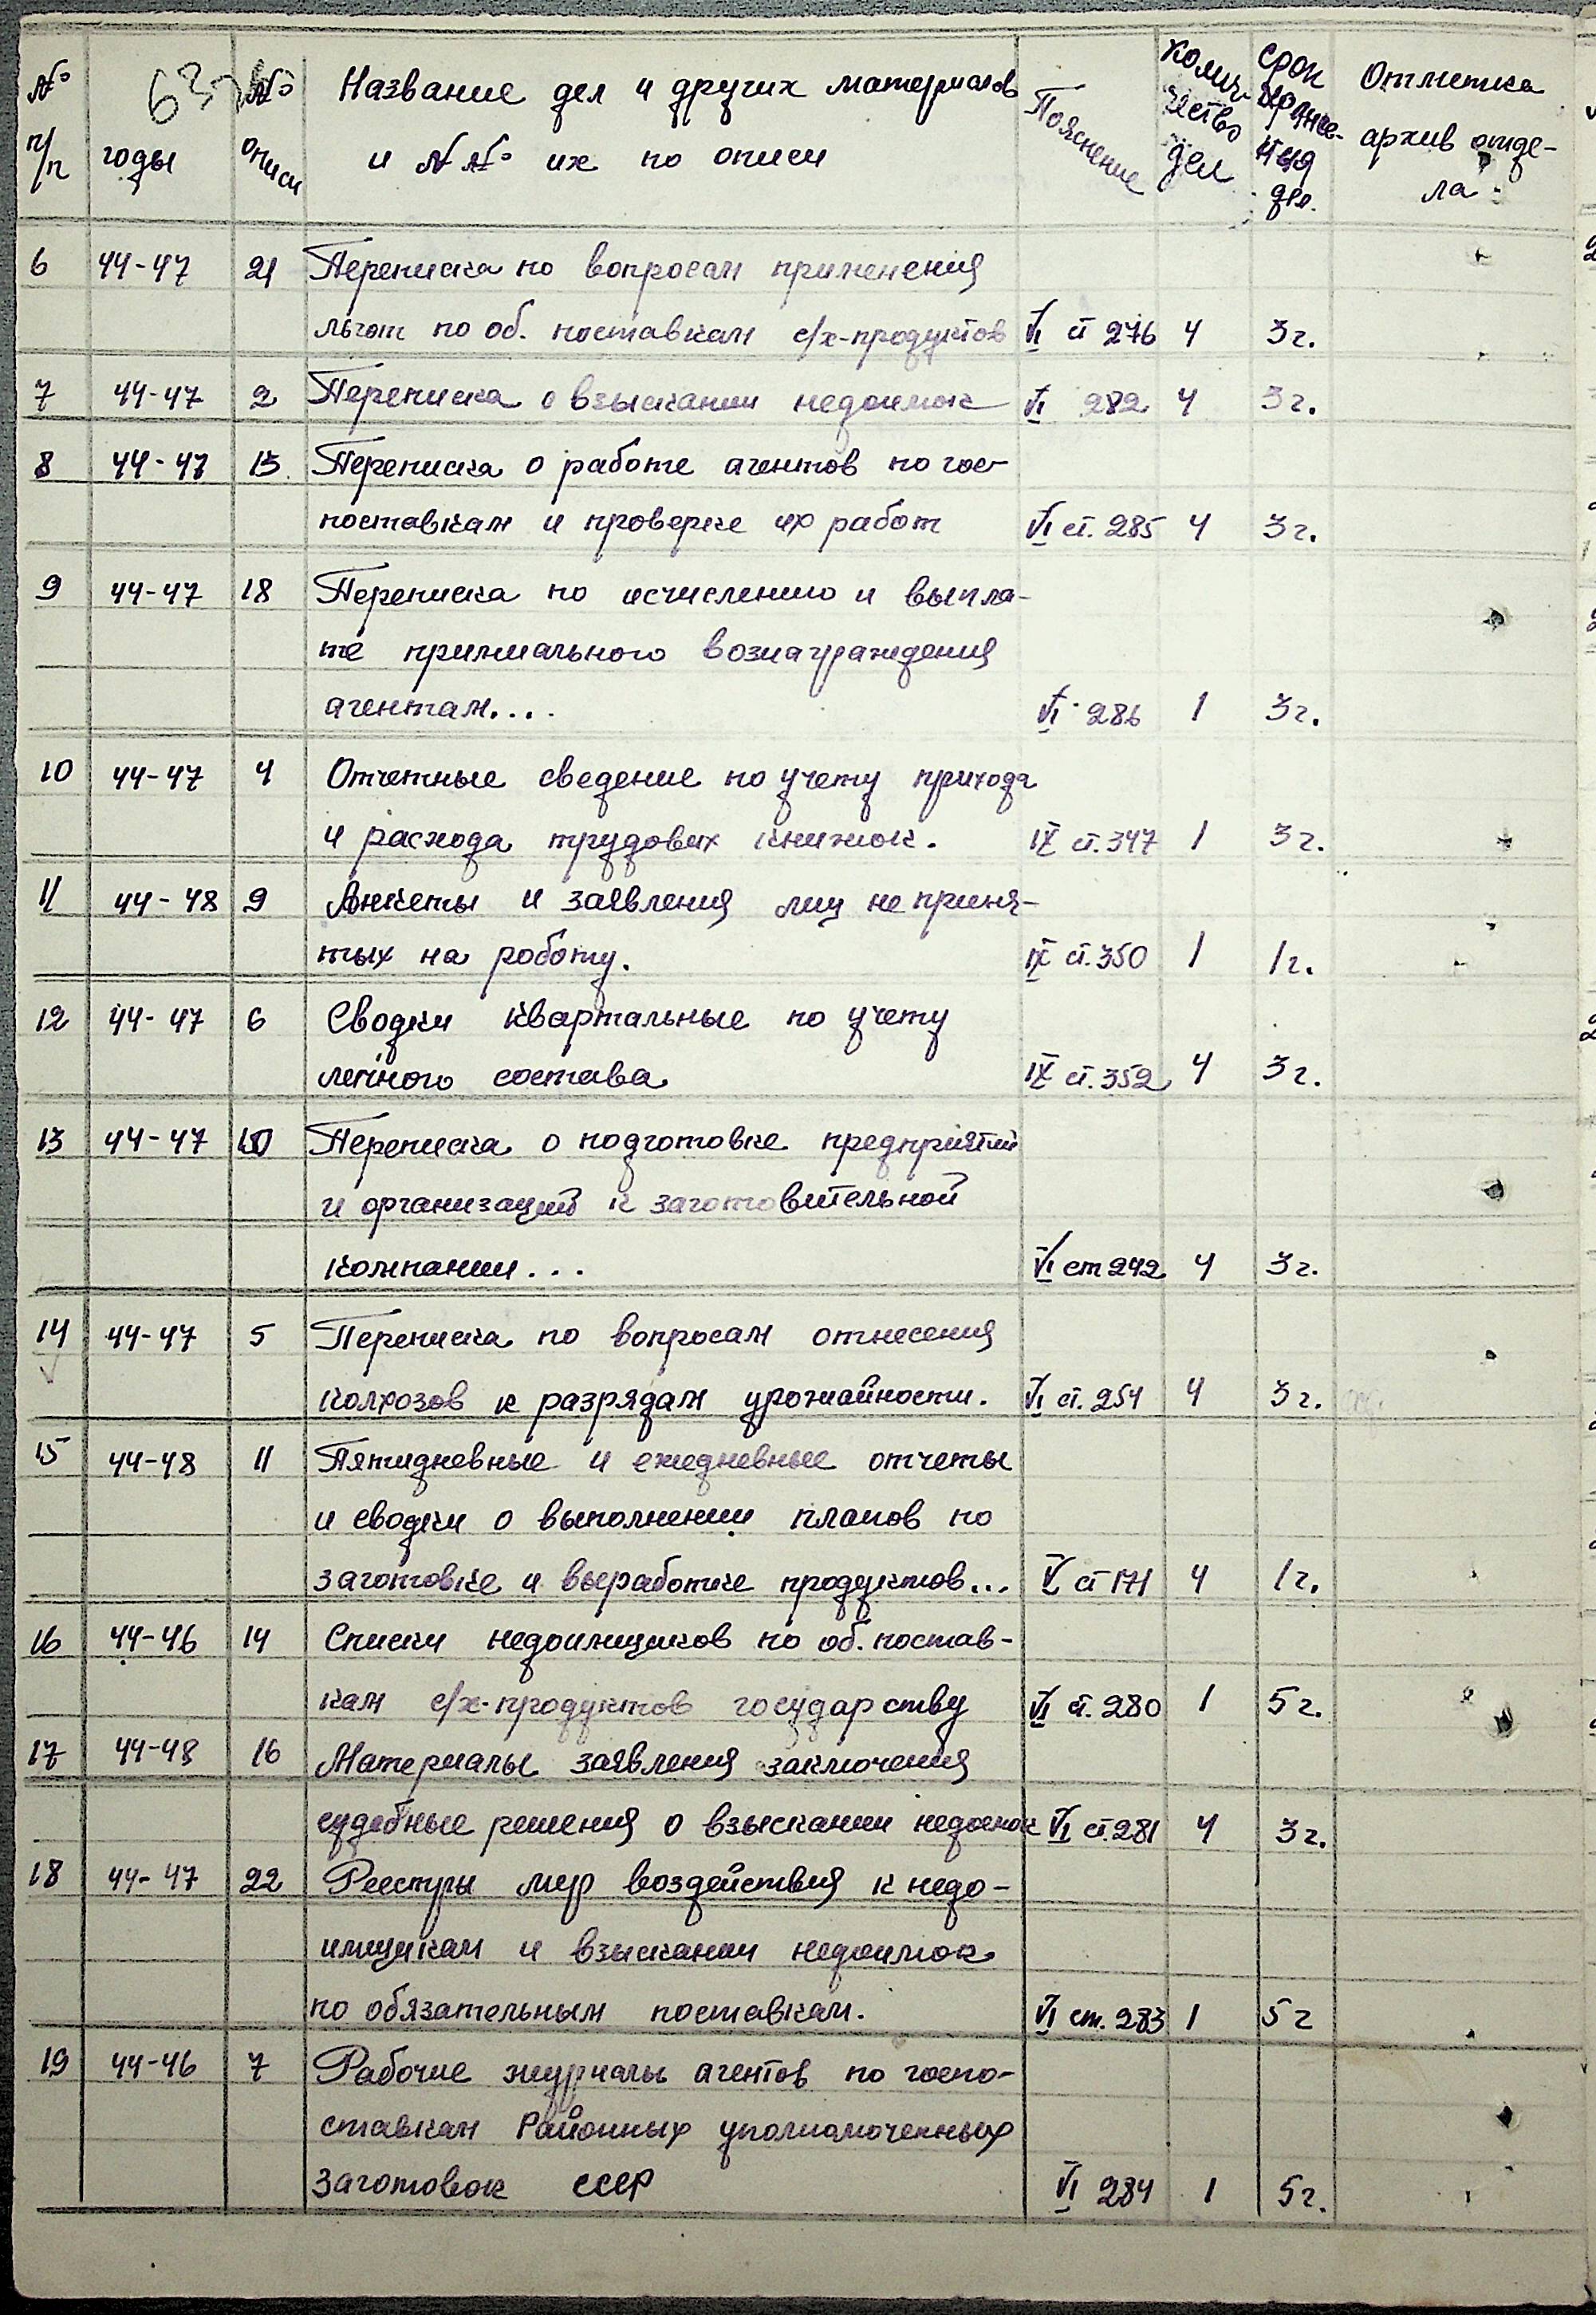 № п/п годы № описи Название дел и других материалов и №№ их по описи Пояснение Количество дел Срок хранения дел. Отметка архив отдела
6 44-47 21 Переписка по вопросам применения
льгот по об. поставкам с/х-продуктов VI ст 276 4 3 г.
7 44-47 2 Переписка о взыскании недоимок VI 282 4 3 г.
8 44-47 13 Переписка о работе агентов по гос-
поставкам и проверке их работ VI ст. 285 4 3 г.
9 44-47 18 Переписка по исчислению и выпла-
те примиального вознаграждения
агентам.... VI 286 1 3 г.
10 44-47 4 Отчетные сведение по учету прихода
и расхода трудових книжок. IX ст. 347 1 3 г.
11 44-48 9 Анкеты и заявления лиц не приня-
тых на роботу. IX ст. 350 1 1 г.
12 44-47 6 Сводки квартальные по учету
личного состава IX ст. 352 4 3 г.
13 44-47 Переписка о подготовке предприятий
и организаций к заготовительной
компании... VI ст 242 4 3 г.
14 44-47 5 Переписка по вопросам отнесения
колхозов к разрядам урожайности. VI ст. 254 4 3 г.
15 44-48 11 Пятидневные и ежедневные отчеты
и сводки о выполнении планов по
заготовке и выработке продуктов... V ст 171 4 1 г.
16 44-46 14 Списки недоимщиков по об. постав-
кам с/х-продуктов государству VI ст. 280 1 5 г.
17 44-48 16 Материалы заявления заключения
судебные решения о взыскании недоимок VI ст. 281 4 3 г.
18 44-47 22 Реестры мер воздействия к недо-
имщикам и взыскании недоимок
по обязательным поставкам. VI ст. 283 1 5 г
19 44-46 7 Рабочие журналы агентов по госпо-
ставкам Районных уполномоченных
заготовок СССР VI 284 1 5 г.